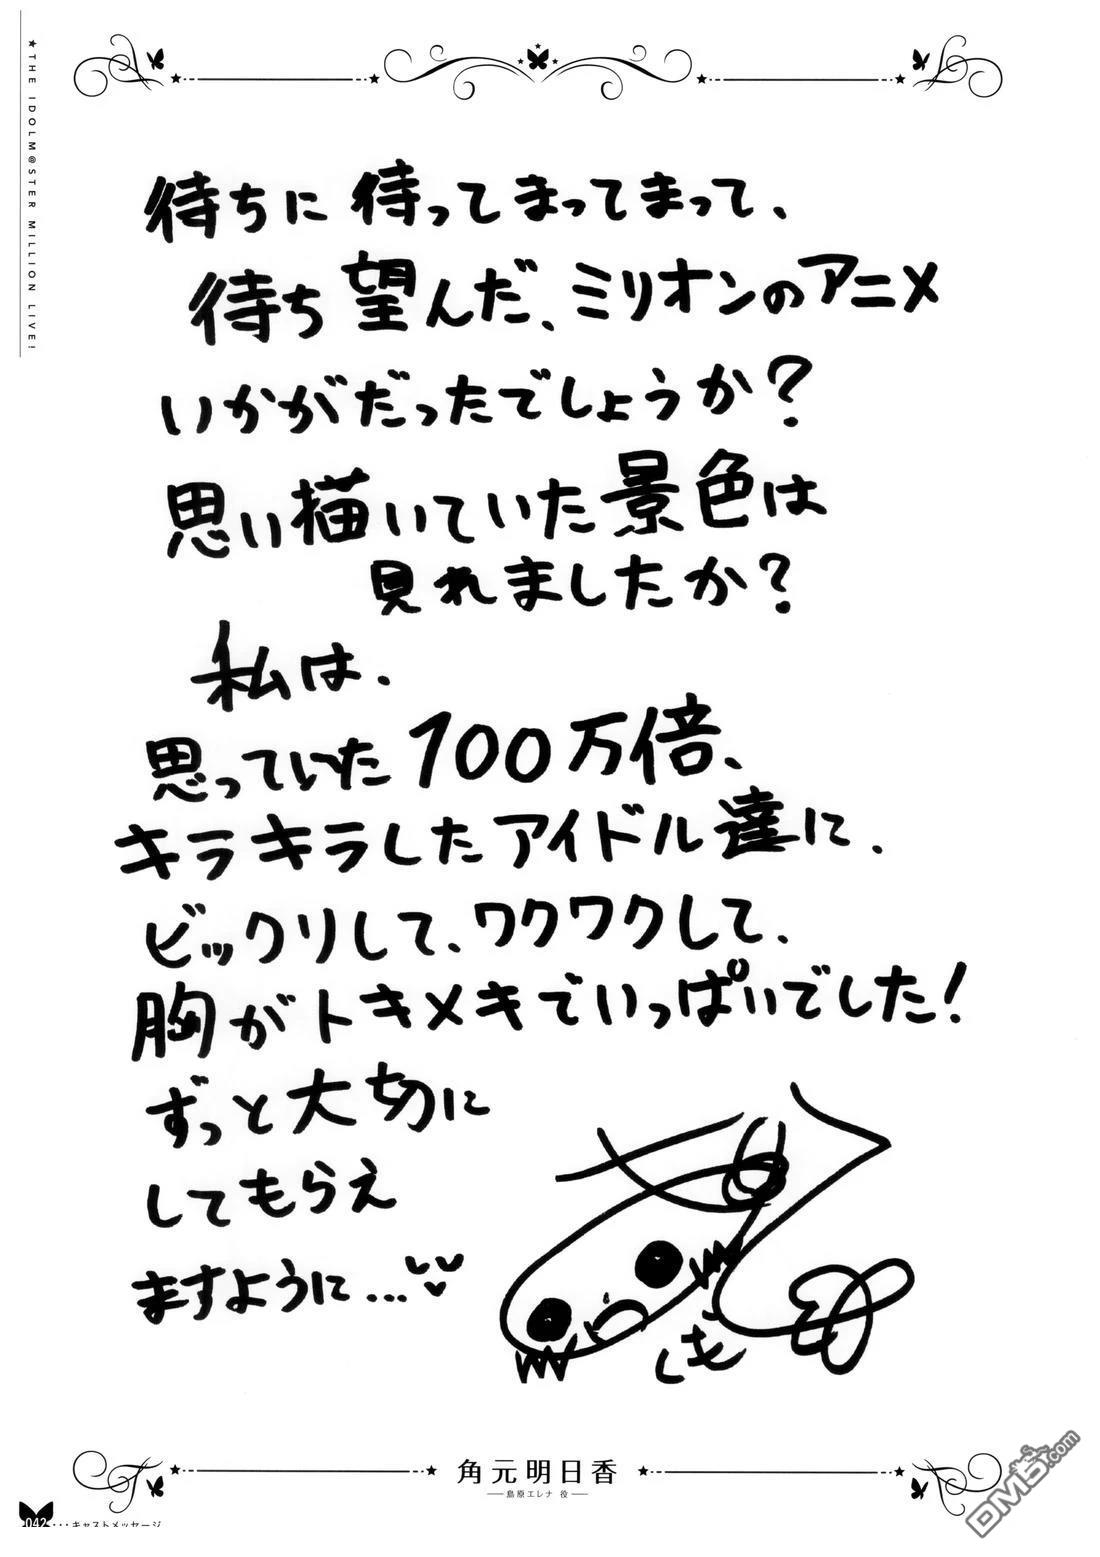 ★THE IDOLM@STER MILLION LIVE!
待ちに待ってまってまって、
待ち望んだ、ミリオンのアニメ
いかがだったでしょうか?
思い描いていた景色は
見れましたか?
私は、
思っていた100万倍、
キラキラしたアイドル達に、
ビックリして、ワクワクして、
胸がトキメキでいっぱいでした!
ずっと大切に
してもらえ
ますように...
角元明日香
島原エレナ 役
042・・・キャストメッセージ
DM5.com